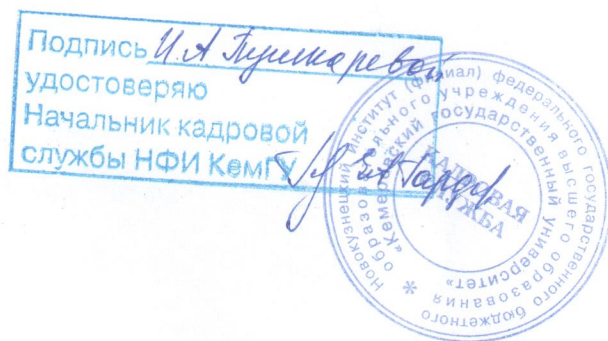 Подпись И.А Пушкаревой
удостоверяю
Начальник кадровой
службы НФИ КемГУ
Новокузнецкий институт (филиал) федерального государственного бюджетного
образовательного учреждения высшего образования
«Кемеровский государственный университет»
КАДРОВАЯ
СЛУЖБА